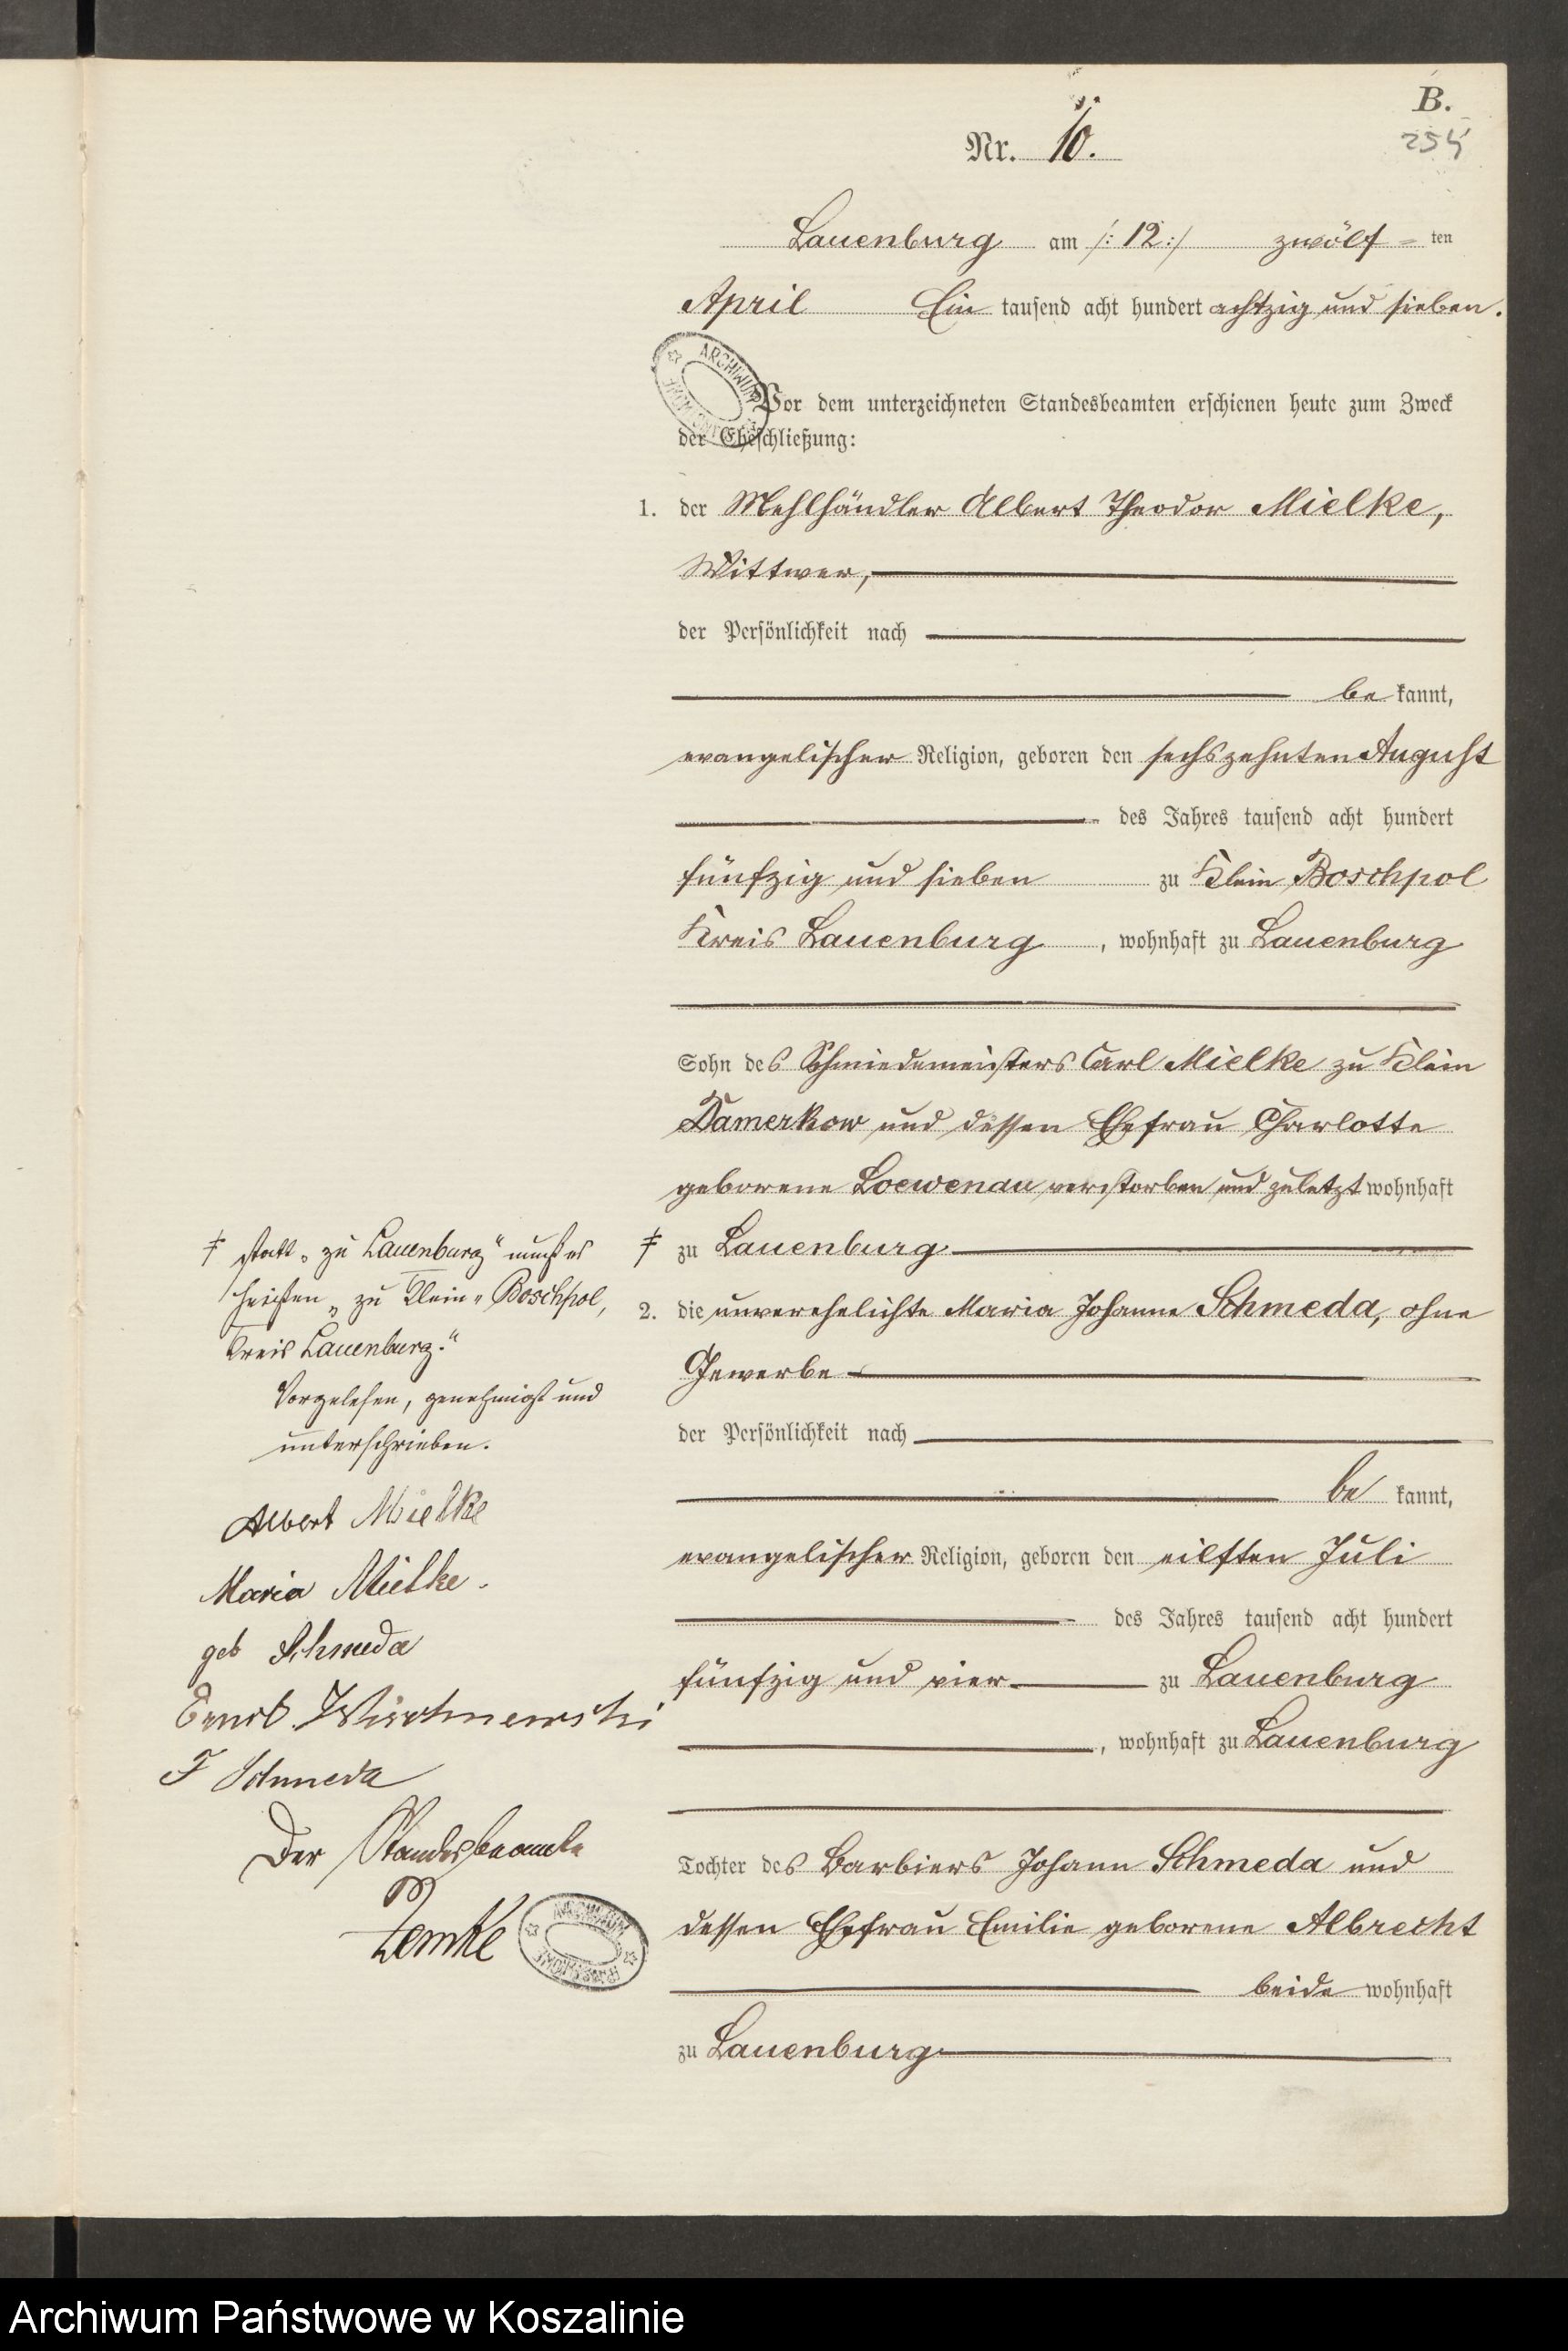 B.
Nr. 10.
Lauenburg am /: 12 :/ zwölf = ten
April Ein tausend acht hundert achtzig und sieben.
ARCHIWUM
Vor dem unterzeichneten Standesbeamten erschienen heute zum Zweck
der Eheschließung:
1. der Mehlhändler Albert Theodor Mielke,
Wittwer,
der Persönlichkeit nach
be kannt,
evangelischer Religion, geboren den sechszehnten August
des Jahres tausend acht hundert
fünfzig und sieben zu Klein Boschpol
Kreis Lauenburg, wohnhaft zu Lauenburg
Sohn des Schmiedemeisters Carl Mielke zu Klein
Damerkow und dessen Ehefrau Charlotte
geborene Loewenau verstorben und zuletzt wohnhaft
ǂ zu Lauenburg
2. die unverehelichte Maria Johanne Schmeda, ohne
Gewerbe
der Persönlichkeit nach
be kannt,
evangelischer Religion, geboren den eilften Juli
des Jahres tausend acht hundert
fünfzig und vier zu Lauenburg
, wohnhaft zu Lauenburg
Tochter des Barbiers Johann Schmeda und
dessen Ehefrau Emilie geborene Albrecht
beide wohnhaft
zu Lauenburg
ǂ statt „zu Lauenburg“ muß es
heißen „zu Klein-Boschpol,
Kreis Lauenburg.“
Vorgelesen, genehmigt und
unterschrieben.
Albert Mielke
Maria Mielke.
geb Schmeda
Ernst Wischnewski
F Schmeda
Der Standesbeamte
Zemke
ARCHIWUM
Archiwum Państwowe w Koszalinie